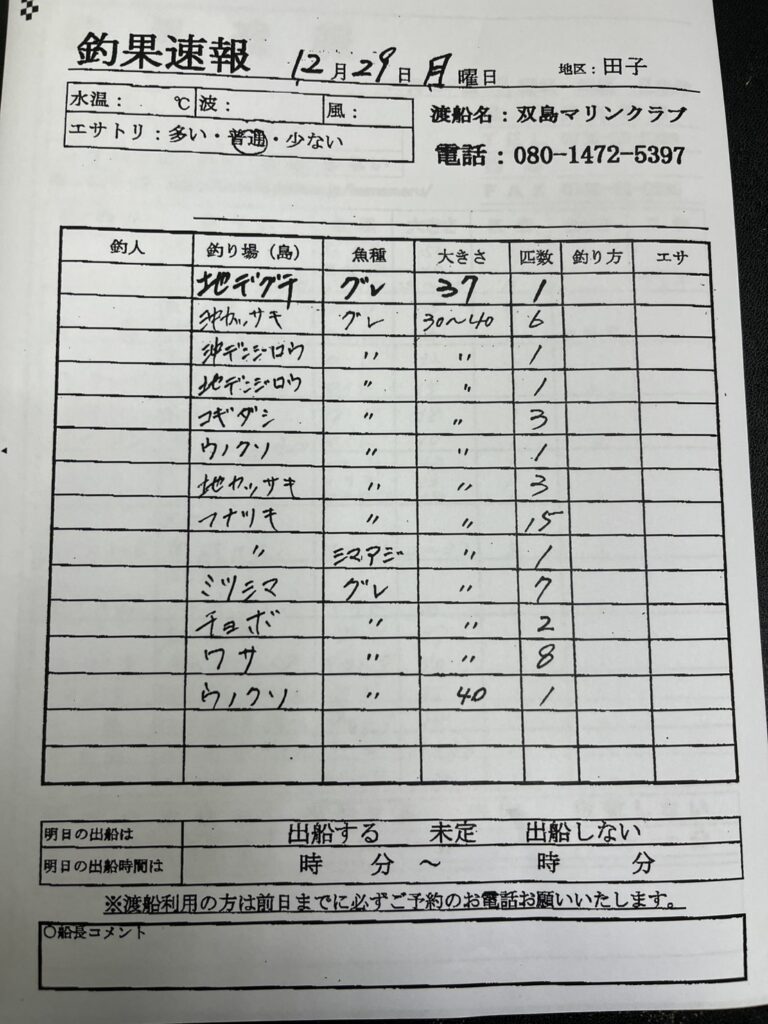 釣果速報 12月29日月曜日 地区：田子
水温： ℃ 波： 風：
エサトリ：多い・普通・少ない
渡船名：双島マリンクラブ
電話：080-1472-5397
釣人 釣り場（島） 魚種 大きさ 匹数 釣り方 エサ
地デグテ グレ 37 1
沖カッサキ グレ 30〜40 6
沖デンジロウ 〃 〃 1
地デンジロウ 〃 〃 1
コギダシ 〃 〃 3
ウノクソ 〃 〃 1
地カッサキ 〃 〃 3
フナツキ 〃 〃 15
〃 シマアジ 〃 1
ミツシマ グレ 〃 7
チョボ 〃 〃 2
ワサ 〃 〃 8
ウノクソ 〃 40 1
明日の出船は 出船する 未定 出船しない
明日の出船時間は 時 分 〜 時 分
※渡船利用の方は前日までに必ずご予約のお電話お願いいたします。
○船長コメント